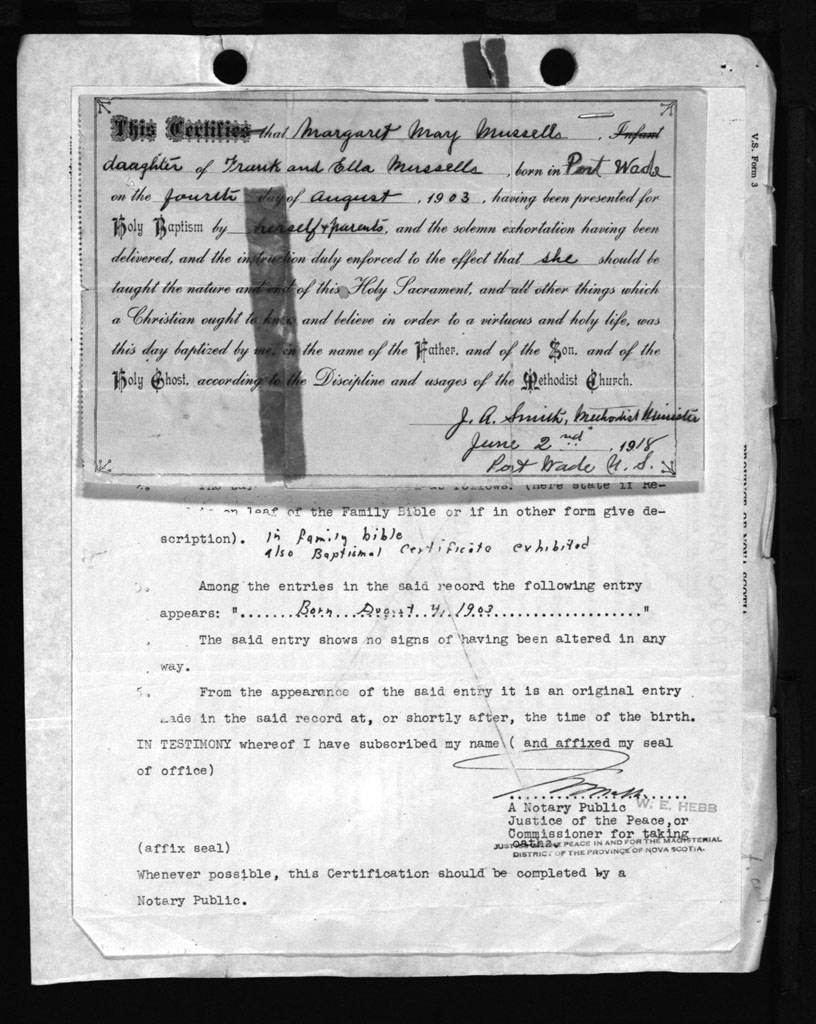 This Certifies that Margaret May Mussells, Infant
daughter of Frank and Ella Mussells, born in Port Wade
on the fourth day of August, 1903, having been presented for
Holy Baptism by herself & parents, and the solemn exhortation having been
delivered, and the instruction duly enforced to the effect that she should be
taught the nature and end of this Holy Sacrament, and all other things which
a Christian ought to know and believe in order to a virtuous and holy life, was
this day baptized by me, in the name of the Father, and of the Son, and of the
Holy Ghost, according to the Discipline and usages of the Methodist Church.
J. A. Smith, Methodist Minister
June 2nd 1918
Port Wade N. S.
V.S. Form 3
as follows: (here state if Re-
on leaf of the Family Bible or if in other form give de-
scription). In family bible
Also Baptismal Certificate exhibited
Among the entries in the said record the following entry
appears: "......Born....August 4, 1903.................."
The said entry shows no signs of having been altered in any
way.
5. From the appearance of the said entry it is an original entry
made in the said record at, or shortly after, the time of the birth.
IN TESTIMONY whereof I have subscribed my name ( and affixed my seal
of office)
A Notary Public W. E. HEBB
Justice of the Peace, or
Commissioner for taking
oaths.
JUSTICE OF THE PEACE IN AND FOR THE MAGISTERIAL
DISTRICT OF THE PROVINCE OF NOVA SCOTIA.
(affix seal)
Whenever possible, this Certification should be completed by a
Notary Public.